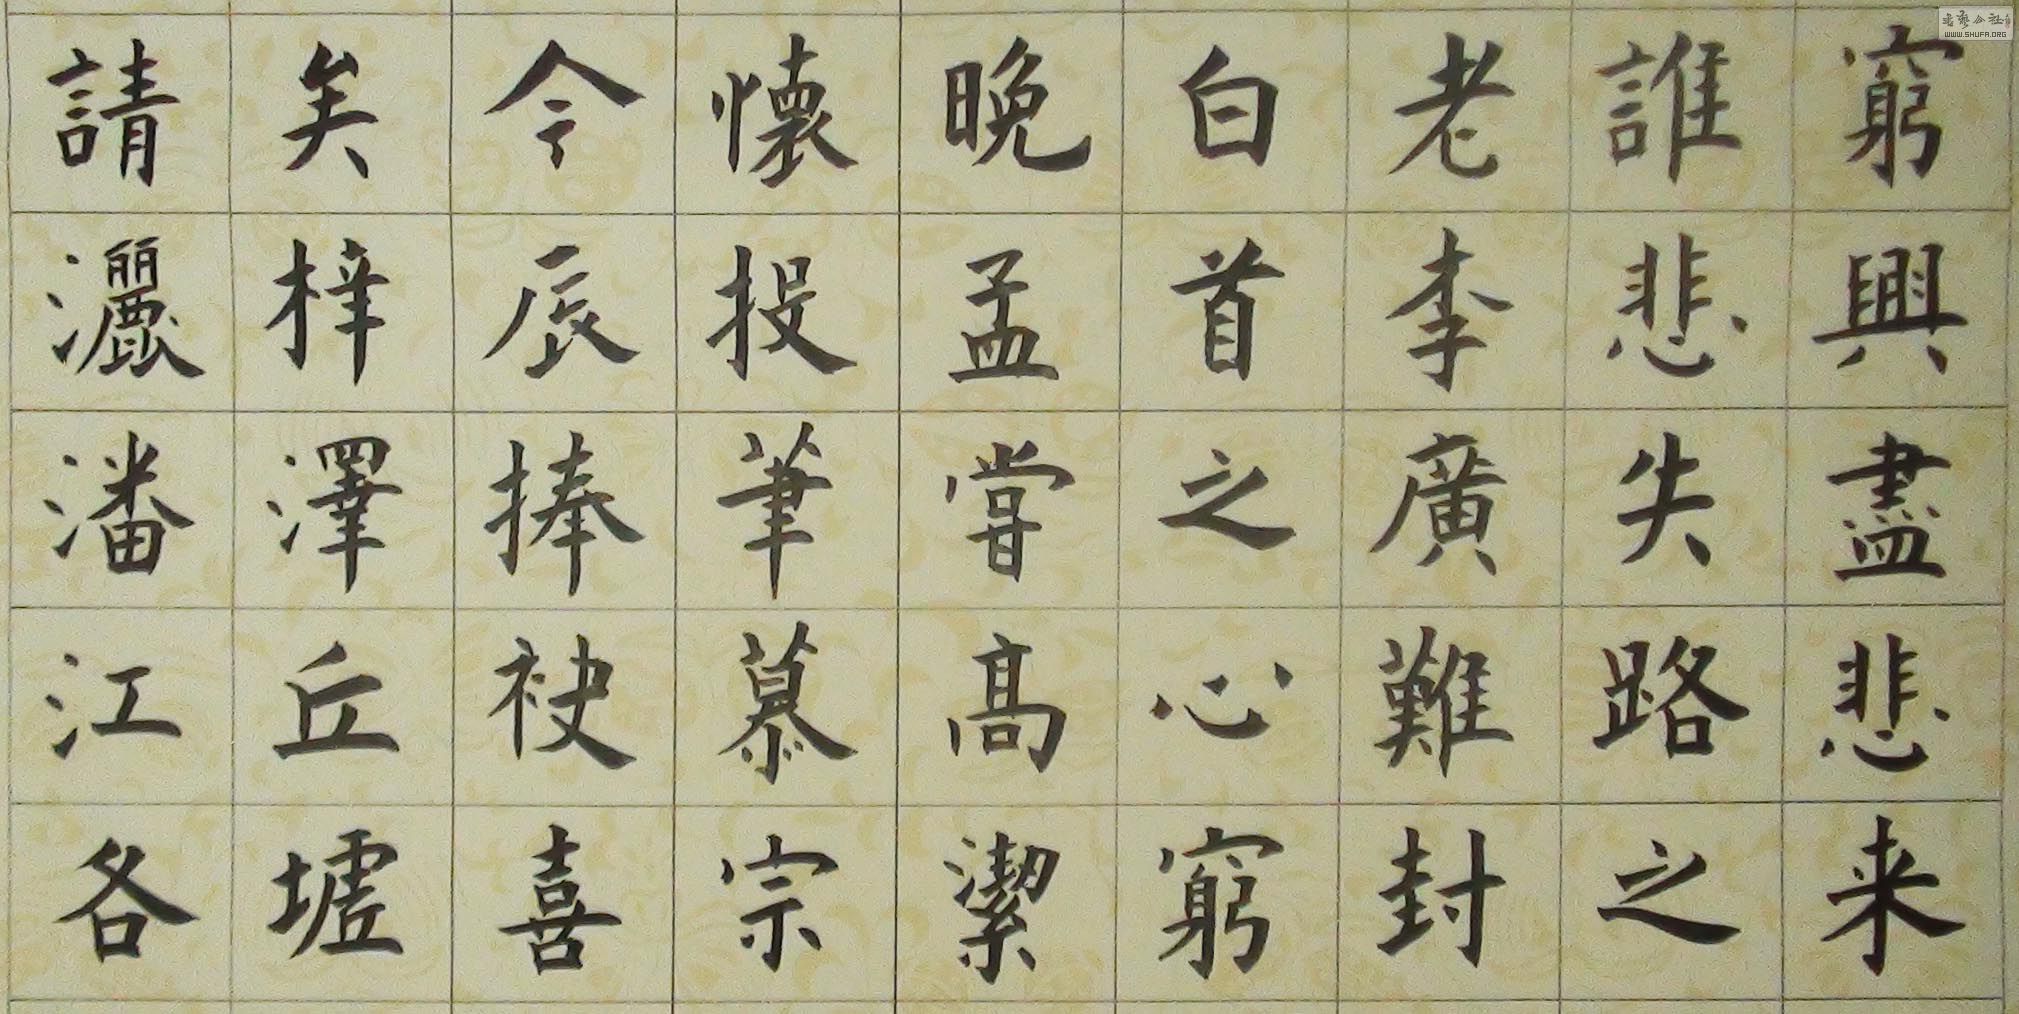 窮興盡悲来
誰悲失路之
老李廣難封
白首之心窮
晚孟嘗高潔
懷投筆慕宗
今辰捧袂喜
矣梓澤丘墟
請灑潘江各
WWW.SHUFA.ORG